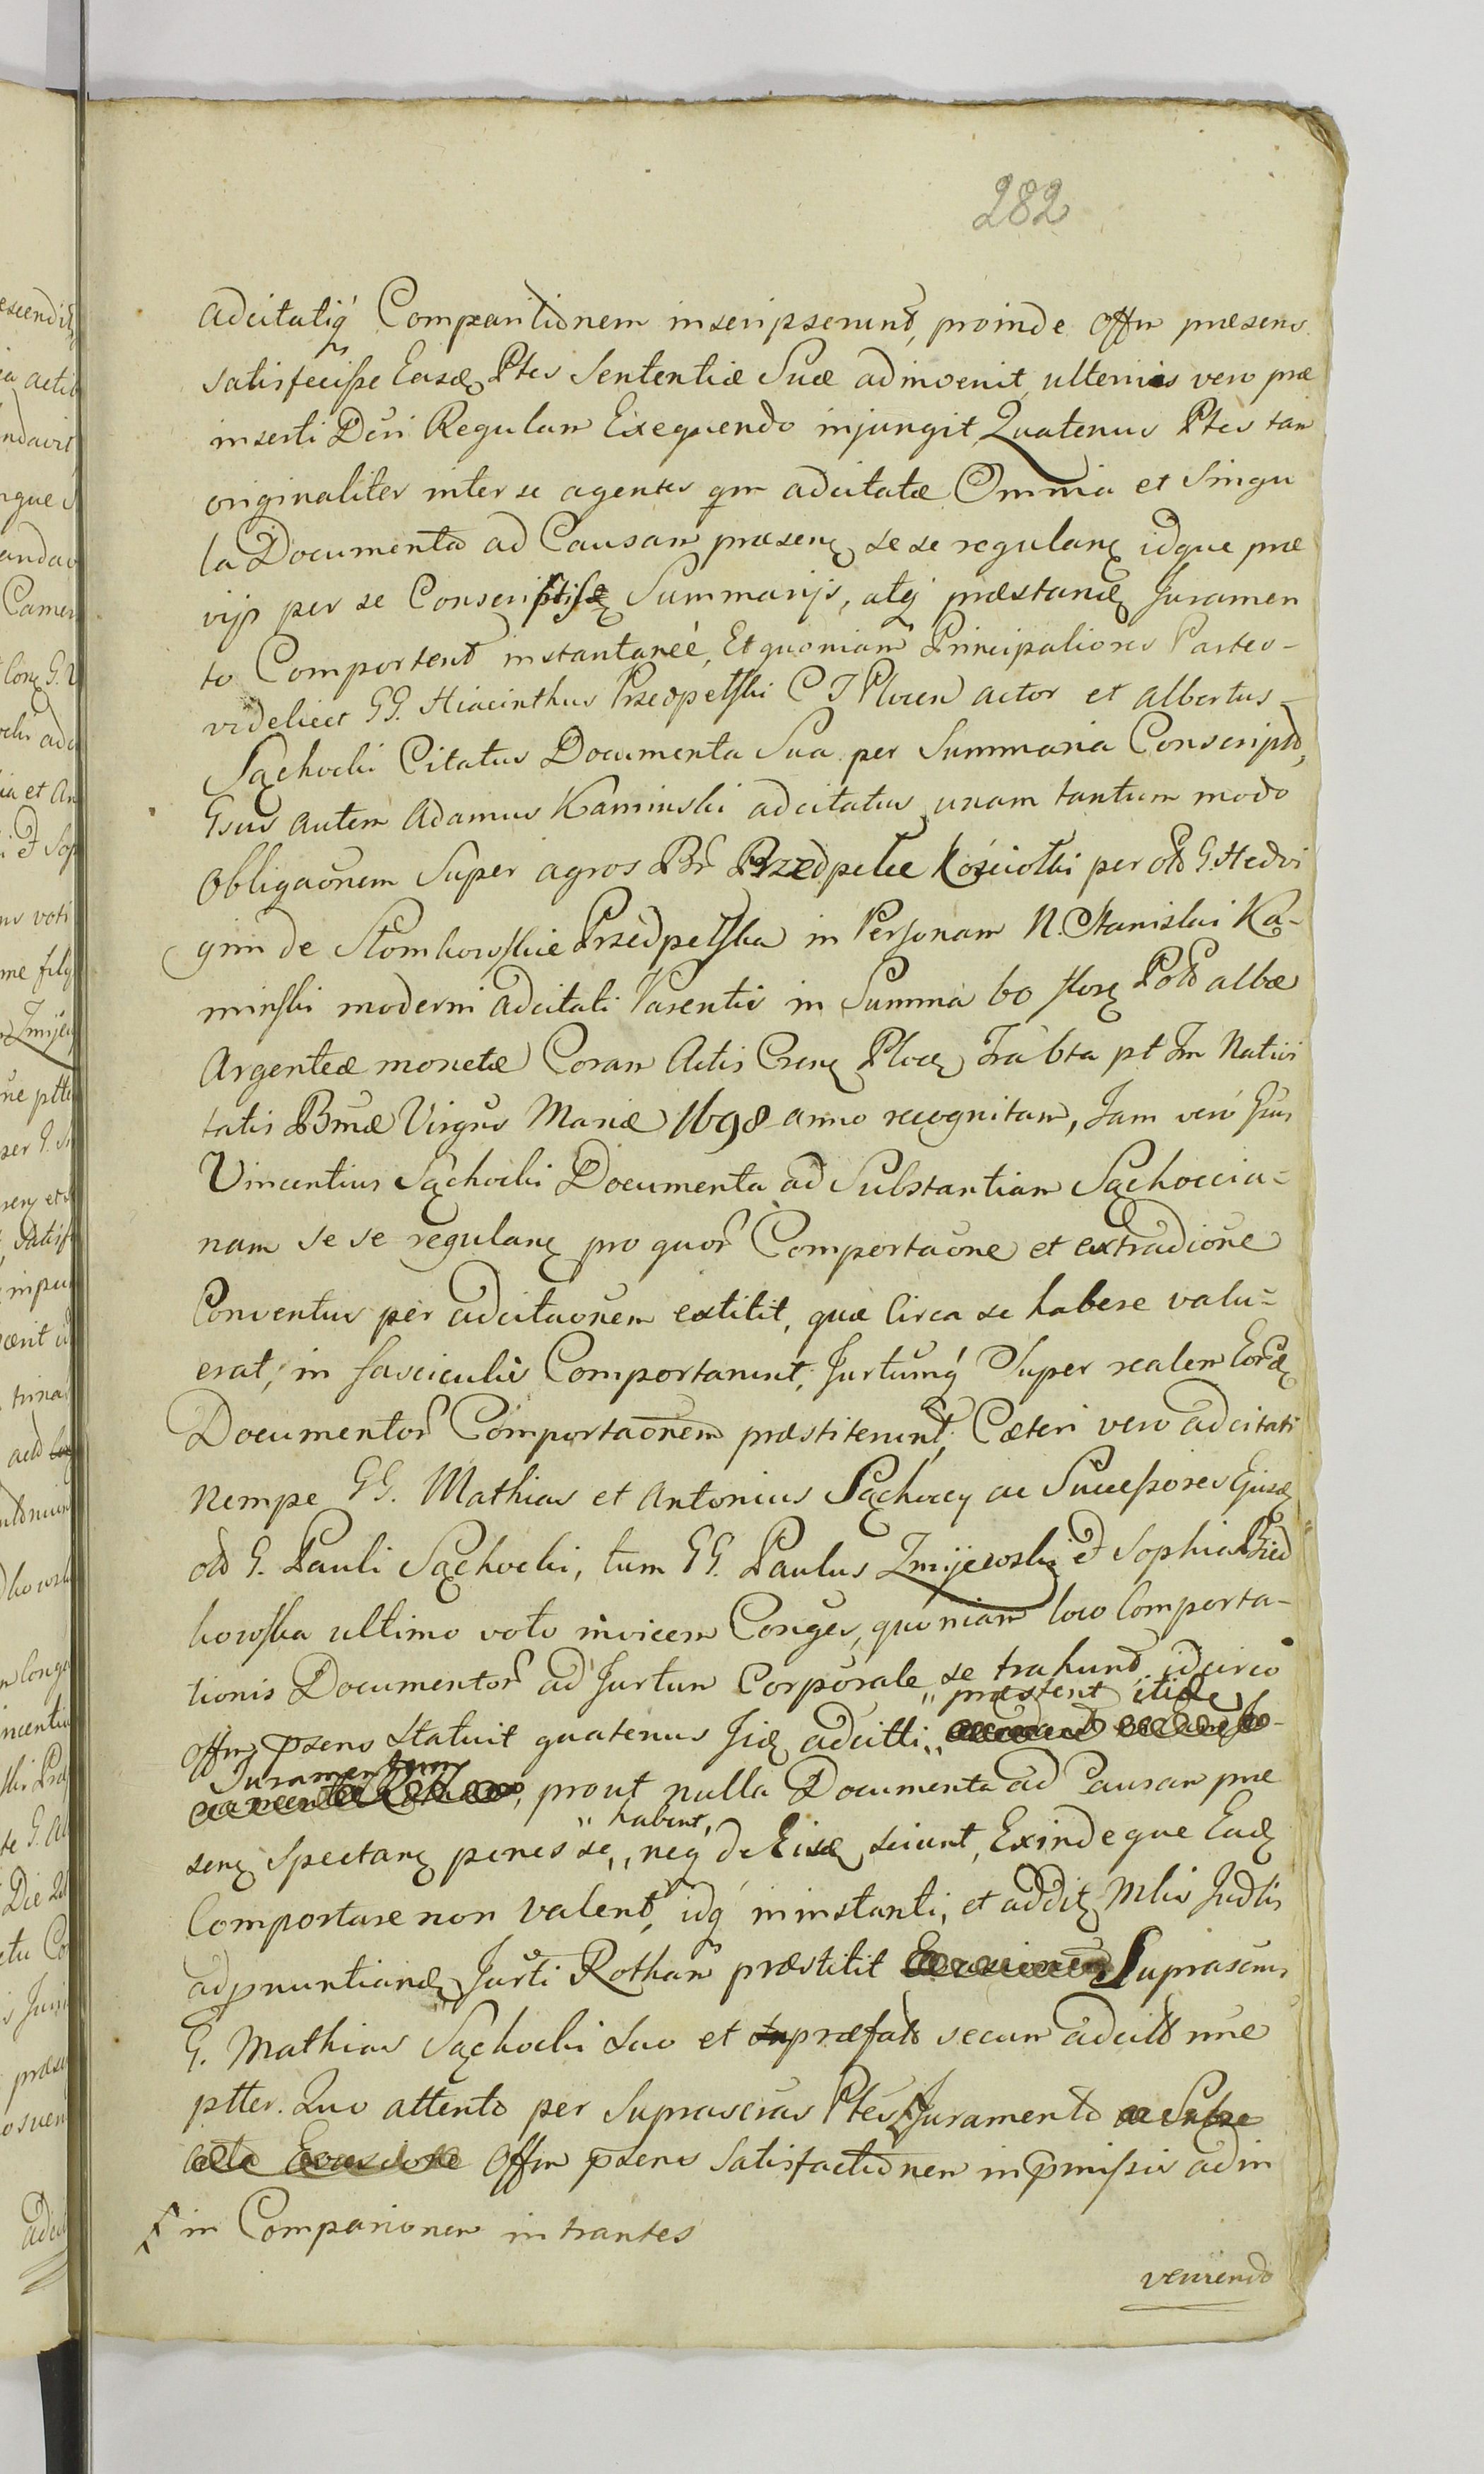 282
adcitatiq́ Comparitionem inscripserunt, proinde Offm præsens
satisfecisse Easdę Ptes Sententiæ Suæ adinvenit, ulterius vero præ
inserti Dcri Regulam Exequendo injungit, Quatenus Ptes tam
originaliter inter se agentes qm adcitatæ Omnia et Singu
la Documenta ad Causam præsenę se se regulanę idque præ
vijs per se Conscriptisę Summarijs, atq́ præstandę Juramen
to Comportent instantaneè, Et quoniam Principaliores Partes-
videlicet GG. Hiacinthus Przedpełski C T Plocen actor et Albertus-
Sąchocki Citatus Documenta Sua per Summaria Conscripta,
Gsus autem Adamus Kaminski adcitatus unam tantum modo
Obligaõnem Super agros Br̃ Przedpełce Kościołki per olt G. Hedvi
gim de Słomkowskie Przedpełska in Personam N. Stanislai Ka-
minski moderni adcitati Parentis in Summa 60 florę Poł albæ
Argenteæ monetæ Coram Actis Crenę Plocę Fra 6ta pt Fm Nativi
tatis Bmæ Virgńs Mariæ 1698 anno recognitam, Jam verò Gsus
Vincentius Sąchocki Documenta ad Substantiam Sąchoccia-
nam se se regulanę pro quor̃ Comportaõne et extradiõne
Conventus per adcitaõnem extitit, quæ Circa se habere valu-
erat, in fasciculis Comportarunt, Jurtumq́ Super realem Eordę
Documentor̃ Comportaõnem præstiterunt, Cæteri vero adcitati
Nempe GG. Mathias et Antonius Sąchoccy ac Successores Ejusdę
olt G. Pauli Sąchocki, tum GG. Paulus Zmijewski et Sophia Bied
kowska ultimo voto invicem Conges, quoniam loco Comporta-
tionis Documentor̃ ad Jurtum Corporale se trahunt, idcirco
Offm psens Statuit quatenus Jidę adcitti „ præstent itidę
Juramentum, prout nulla Documenta ad Causam præ
senę Spectanę penes se, „ habent, neq́ de Eisdę sciunt, Exindeque Eadę
Comportare non valent, idq́ in instanti, et additę Mlis Judlis
adpnuntiandę Jurti Rotham præstitit Suprascrus
G. Mathias Sąchocki suo et præfato secum adcitt nne
ptter. Quo attento per Suprascrus Ptes Juramento
Offm psens Satisfactionem in pmissis adin
in Comparionem intrantes
veniendo